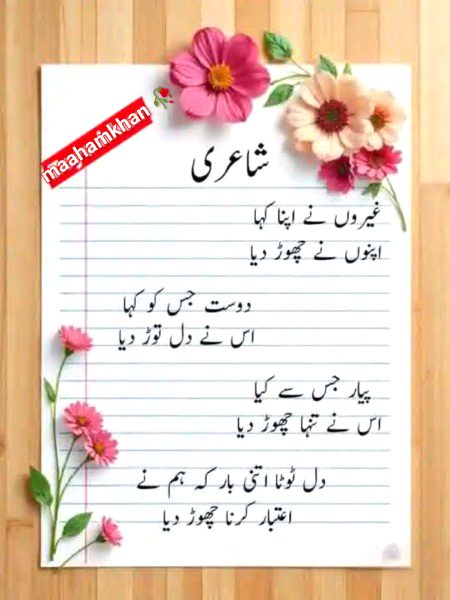 maahamkhan
شاعری
غیروں نے اپنا کہا
اپنوں نے چھوڑ دیا
دوست جس کو کہا
اس نے دل توڑ دیا
پیار جس سے کیا
اس نے تنہا چھوڑ دیا
دل ٹوٹا اتنی بار کہ ہم نے
اعتبار کرنا چھوڑ دیا